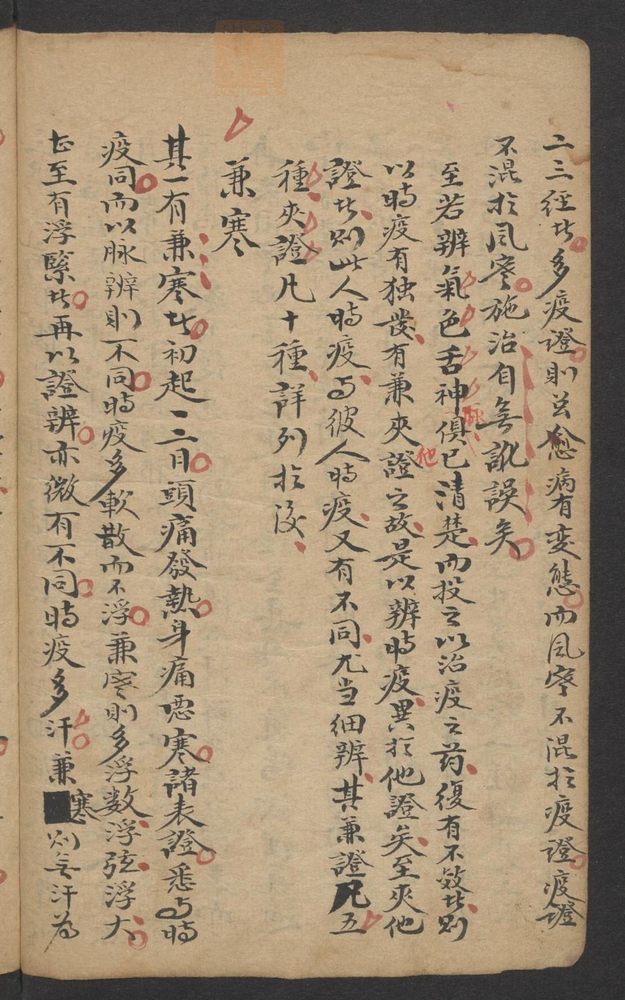 二三經者多疫證則益愈病有变態而风寒不混於疫證疫證
不混於风寒施治自無訛誤矣
至若辨氣色舌神脈俱已清楚而投之以治疫之药復有不效者则
以時疫有独發有兼夾他證之故是以辨時疫異於他證矣至夾他
證者则此人時疫与彼人時疫又有不同尤当细辨其兼證凡五
種夾證凡十種詳列於後
兼寒
其一有兼寒者初起一二日頭痛發熱身痛惡寒諸表證悉与時
疫同而以脉辨则不同時疫多軟散而不浮兼寒则多浮数浮弦浮大
甚至有浮緊者再以證辨亦微有不同時疫多汗兼寒则無汗为